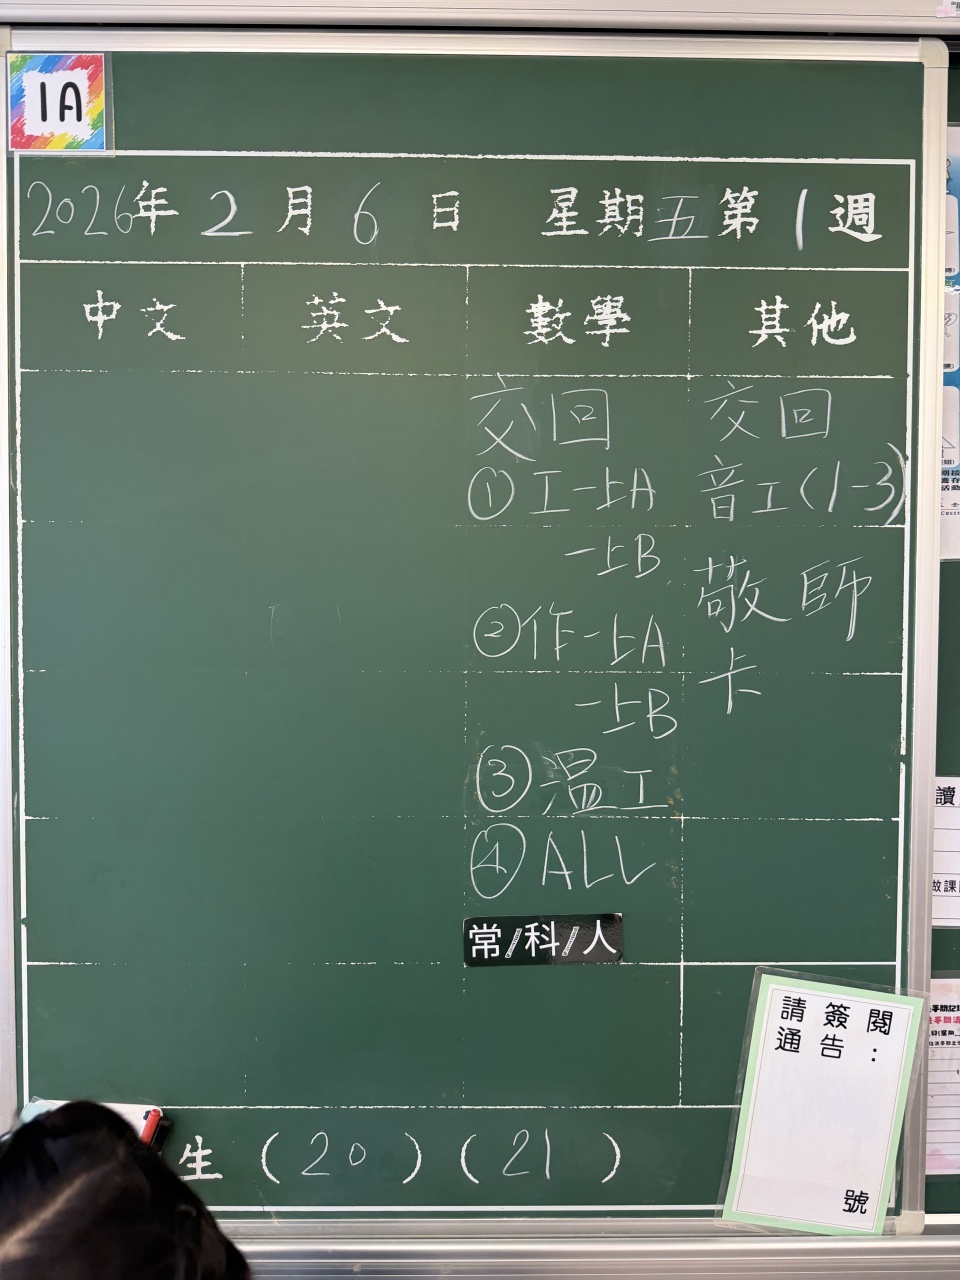 1A
2026年 2 月 6 日 星期五 第 1 週
中文 英文 數學 其他
交回
①工一上A
一上B
②作一上A
一上B
③溫工
④ALL
常/科/人
交回
音工(1-3)
敬師
卡
請簽閱
通告:
號
生 (20) (21)
讀